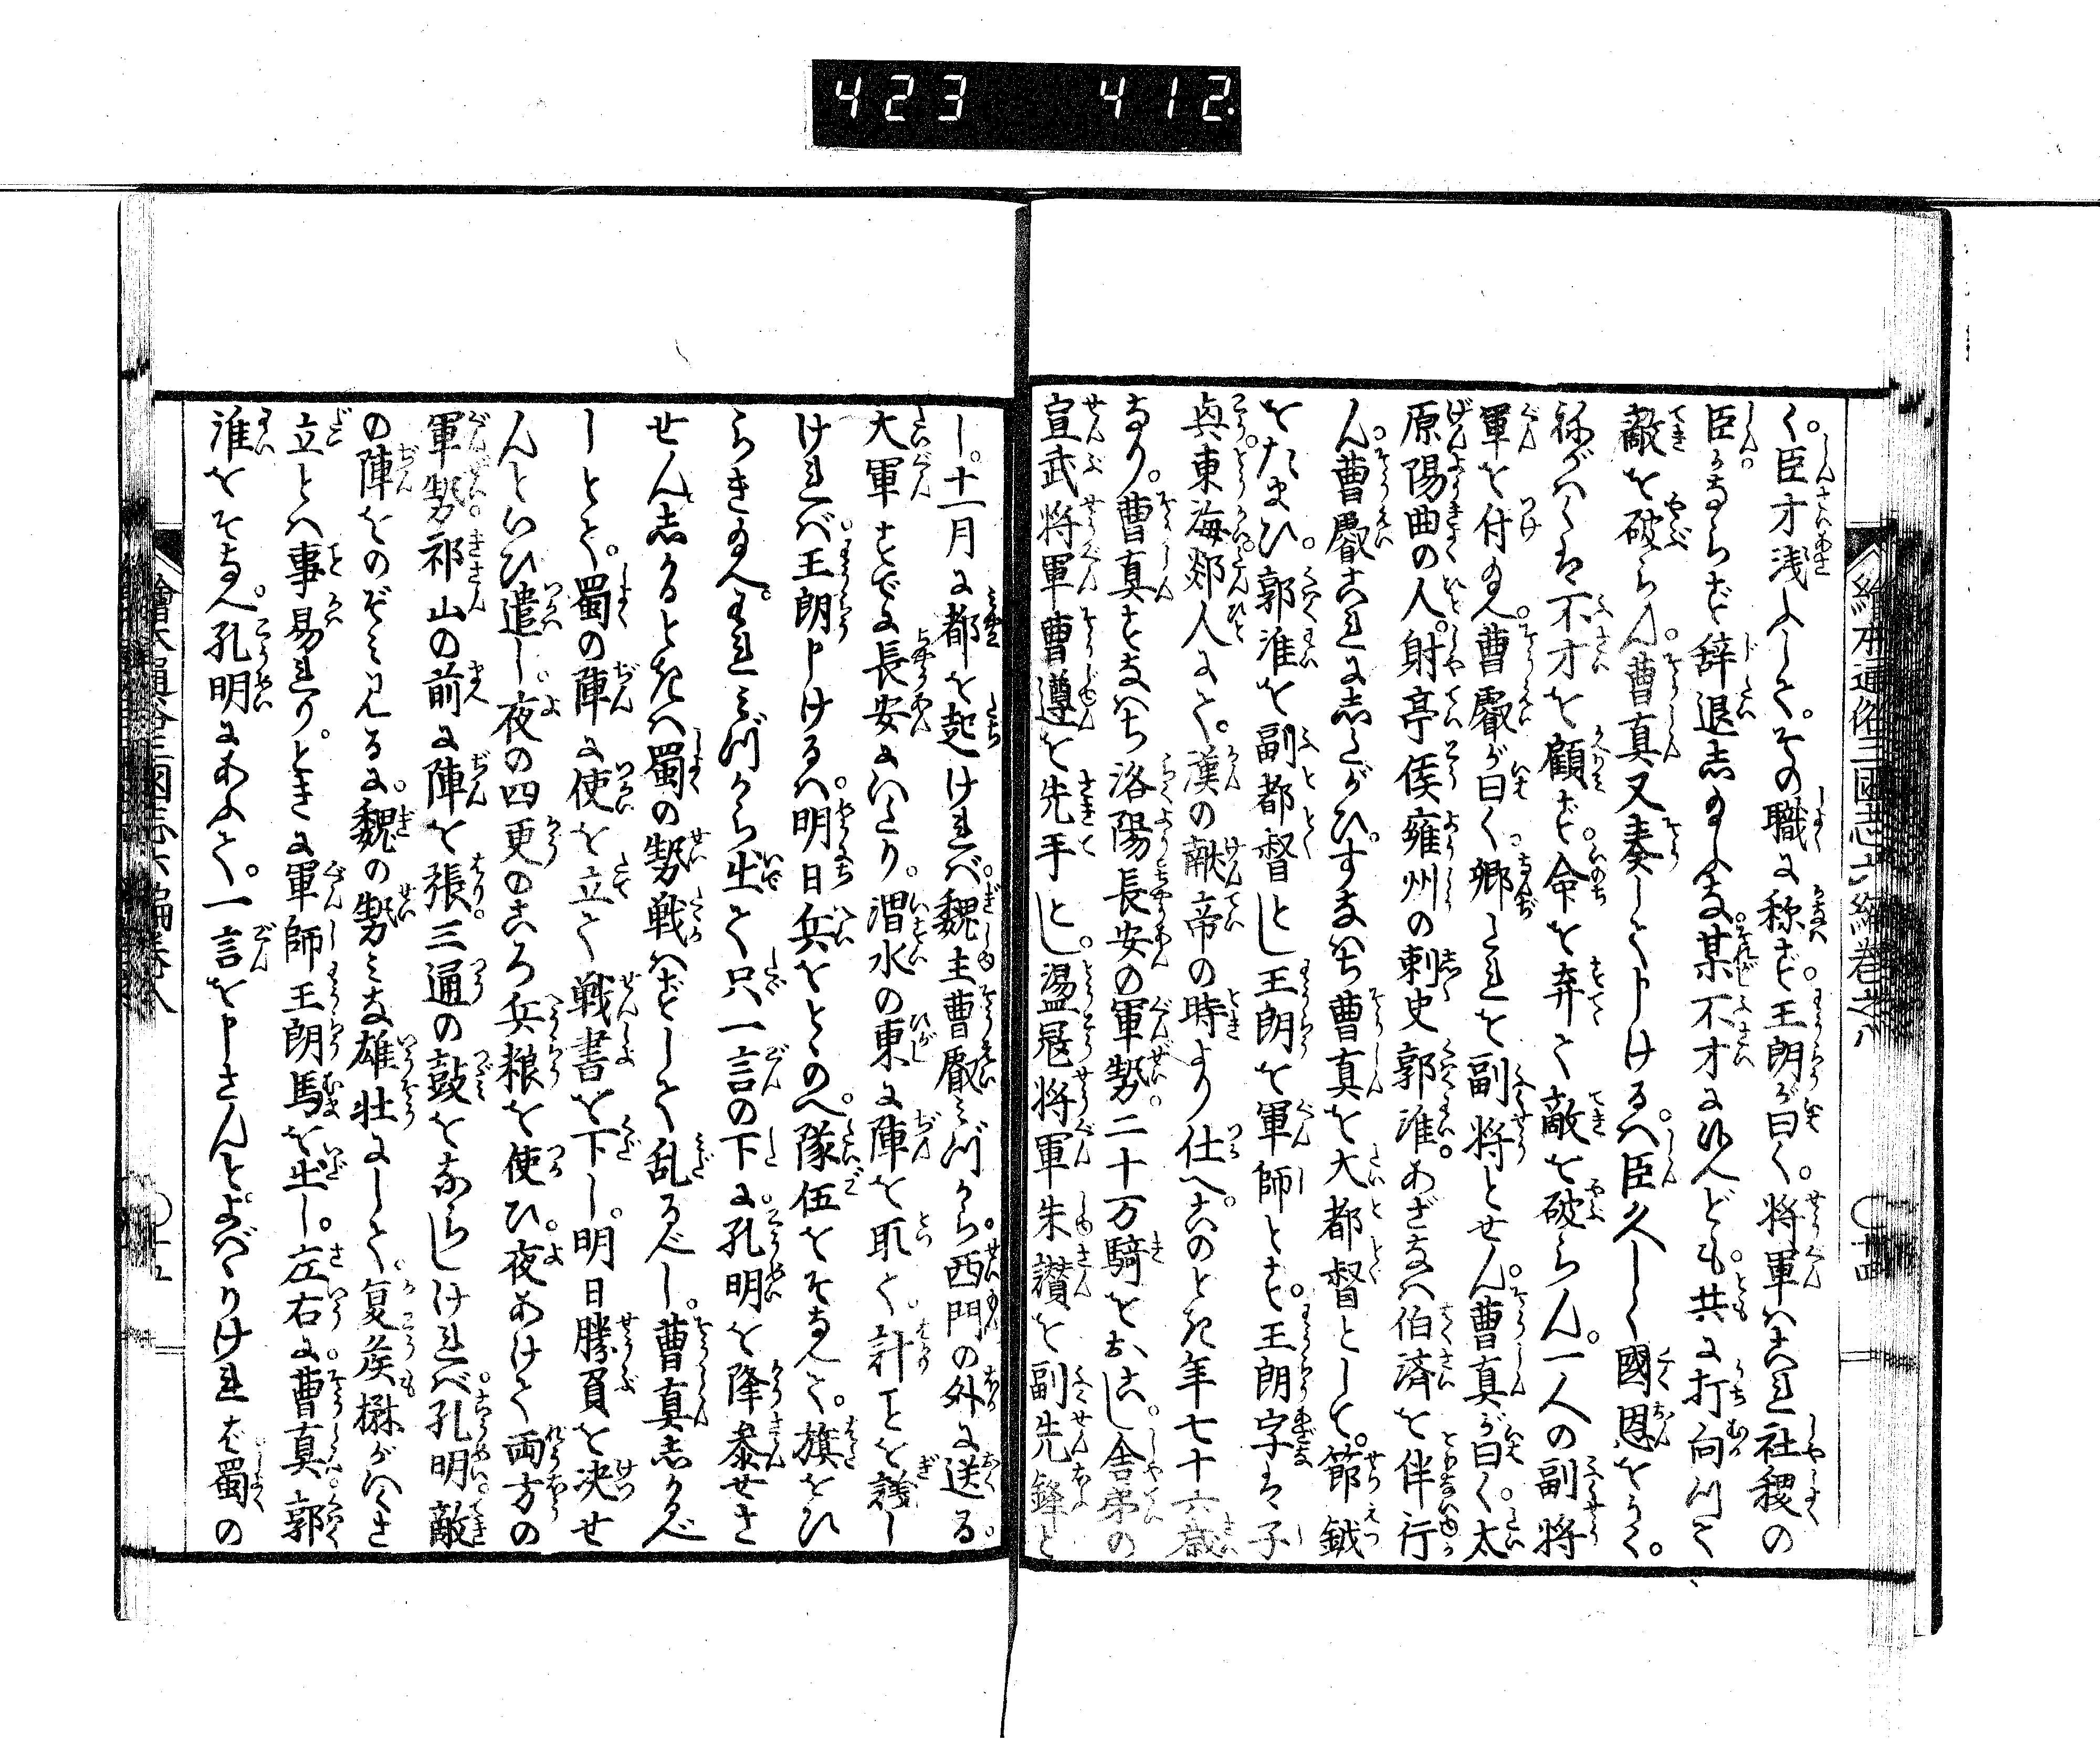 423 412
繪本通俗三國志六編巻之八
く。臣才浅ふして。その職に称ず。王朗が曰く。将軍はこれ社稷の
臣なり。ならず辞退し玉ふな。某不才に候へども。共に打向つて
敵を破らん。曹真又奏して申けるは。臣久しく國恩をうく。
ねがはくは不才を顧ず。命を弃て敵を破らん。一人の副将
軍を付玉へ。曹叡が曰く。卿これを副将とせん。曹真が曰く。太
原陽曲の人。射亭侯雍州の刺史郭淮。あざなは伯済を伴行
ん。曹叡これにしたがひ。すなはち曹真を大都督として。節鉞
をたまひ。郭淮を副都督とし王朗を軍師とす。王朗字は子
興東海郯人にて。漢の献帝の時より仕へ。このとき年七十六歳
なり。曹真すなはち洛陽長安の軍勢。二十万騎をおこし。舎弟の
宣武将軍曹遵を先手とし。盪冦将軍朱讃を副先鋒と
し。十一月に都を起ければ。魏主曹叡みづから。西門の外に送る。
大軍すでに長安にいたり。渭水の東に陣を取て。計ことを議し
ければ。王朗申けるは。明日兵をとゝのへ。隊伍をそなへて。旗をひ
らき玉へ。われみづから出て只一言の下に。孔明を降参せさ
せん。しかるときは蜀の勢戦はずして乱るべし。曹真しかるべ
しとて。蜀の陣に使を立て戦書を下し。明日勝負を决せ
んといひ遣し。夜の四更のころ兵粮を使ひ。夜あけて両方の
軍勢。祁山の前に陣を張。三通の鼓をならしければ。孔明。敵
の陣をのぞみみるに。魏の勢みな雄壮にして。夏矦楙がいくさ
立とは事易れり。ときに軍師王朗馬を出し。左右に。曹真。郭
淮をそなへ。孔明にあふて。一言を申さんとよばゝりければ。蜀の